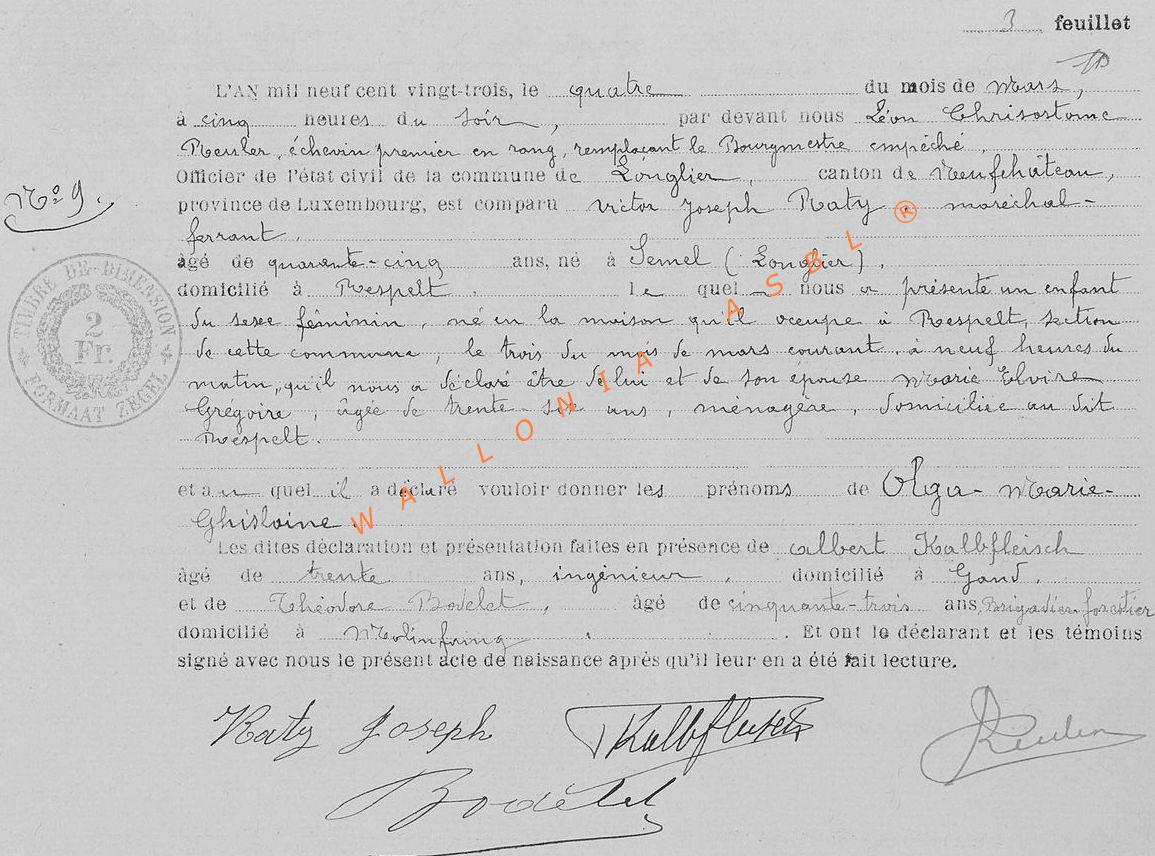 3 feuillet
L'AN mil neuf cent vingt-trois, le quatre du mois de Mars,
à cinq heures du soir, par devant nous Léon Chrisostome
échevin premier en rang, remplaçant le Bourgmestre empêché,
Officier de l'état civil de la commune de Longlier, canton de Neufchâteau,
No 9.
province de Luxembourg, est comparu Victor Joseph Raty, maréchal-
ferrant.
âgé de quarante-cinq ans, né à Semel (Longlier),
domicilié à Respelt le quel nous a présenté un enfant
du sexe féminin, né en la maison qu'il occupe à Respelt, section
de cette commune, le trois du mois de mars courant, à neuf heures du
matin, qu'il nous a déclaré être de lui et de son épouse Marie Elvire
Grégoire, âgée de trente-six ans, ménagère, domiciliée au dit
Respelt.
et au quel il a déclaré vouloir donner les prénoms de Olga-Marie-
Ghislaine.
Les dites déclaration et présentation faites en présence de Albert Kalbfleisch
âgé de trente ans, ingénieur, domicilié à Gand,
et de Théodore Bodelet, âgé de cinquante-trois ans, Brigadier forestier
domicilié à Molinfaing. Et ont le déclarant et les témoins
signé avec nous le présent acte de naissance après qu'il leur en a été fait lecture.
Raty Joseph Kalbfleisch
Bodelet
TIMBRE DE DIMENSION
2
Fr.
FORMAAT ZEGEL
WALLONIA ASBL ®